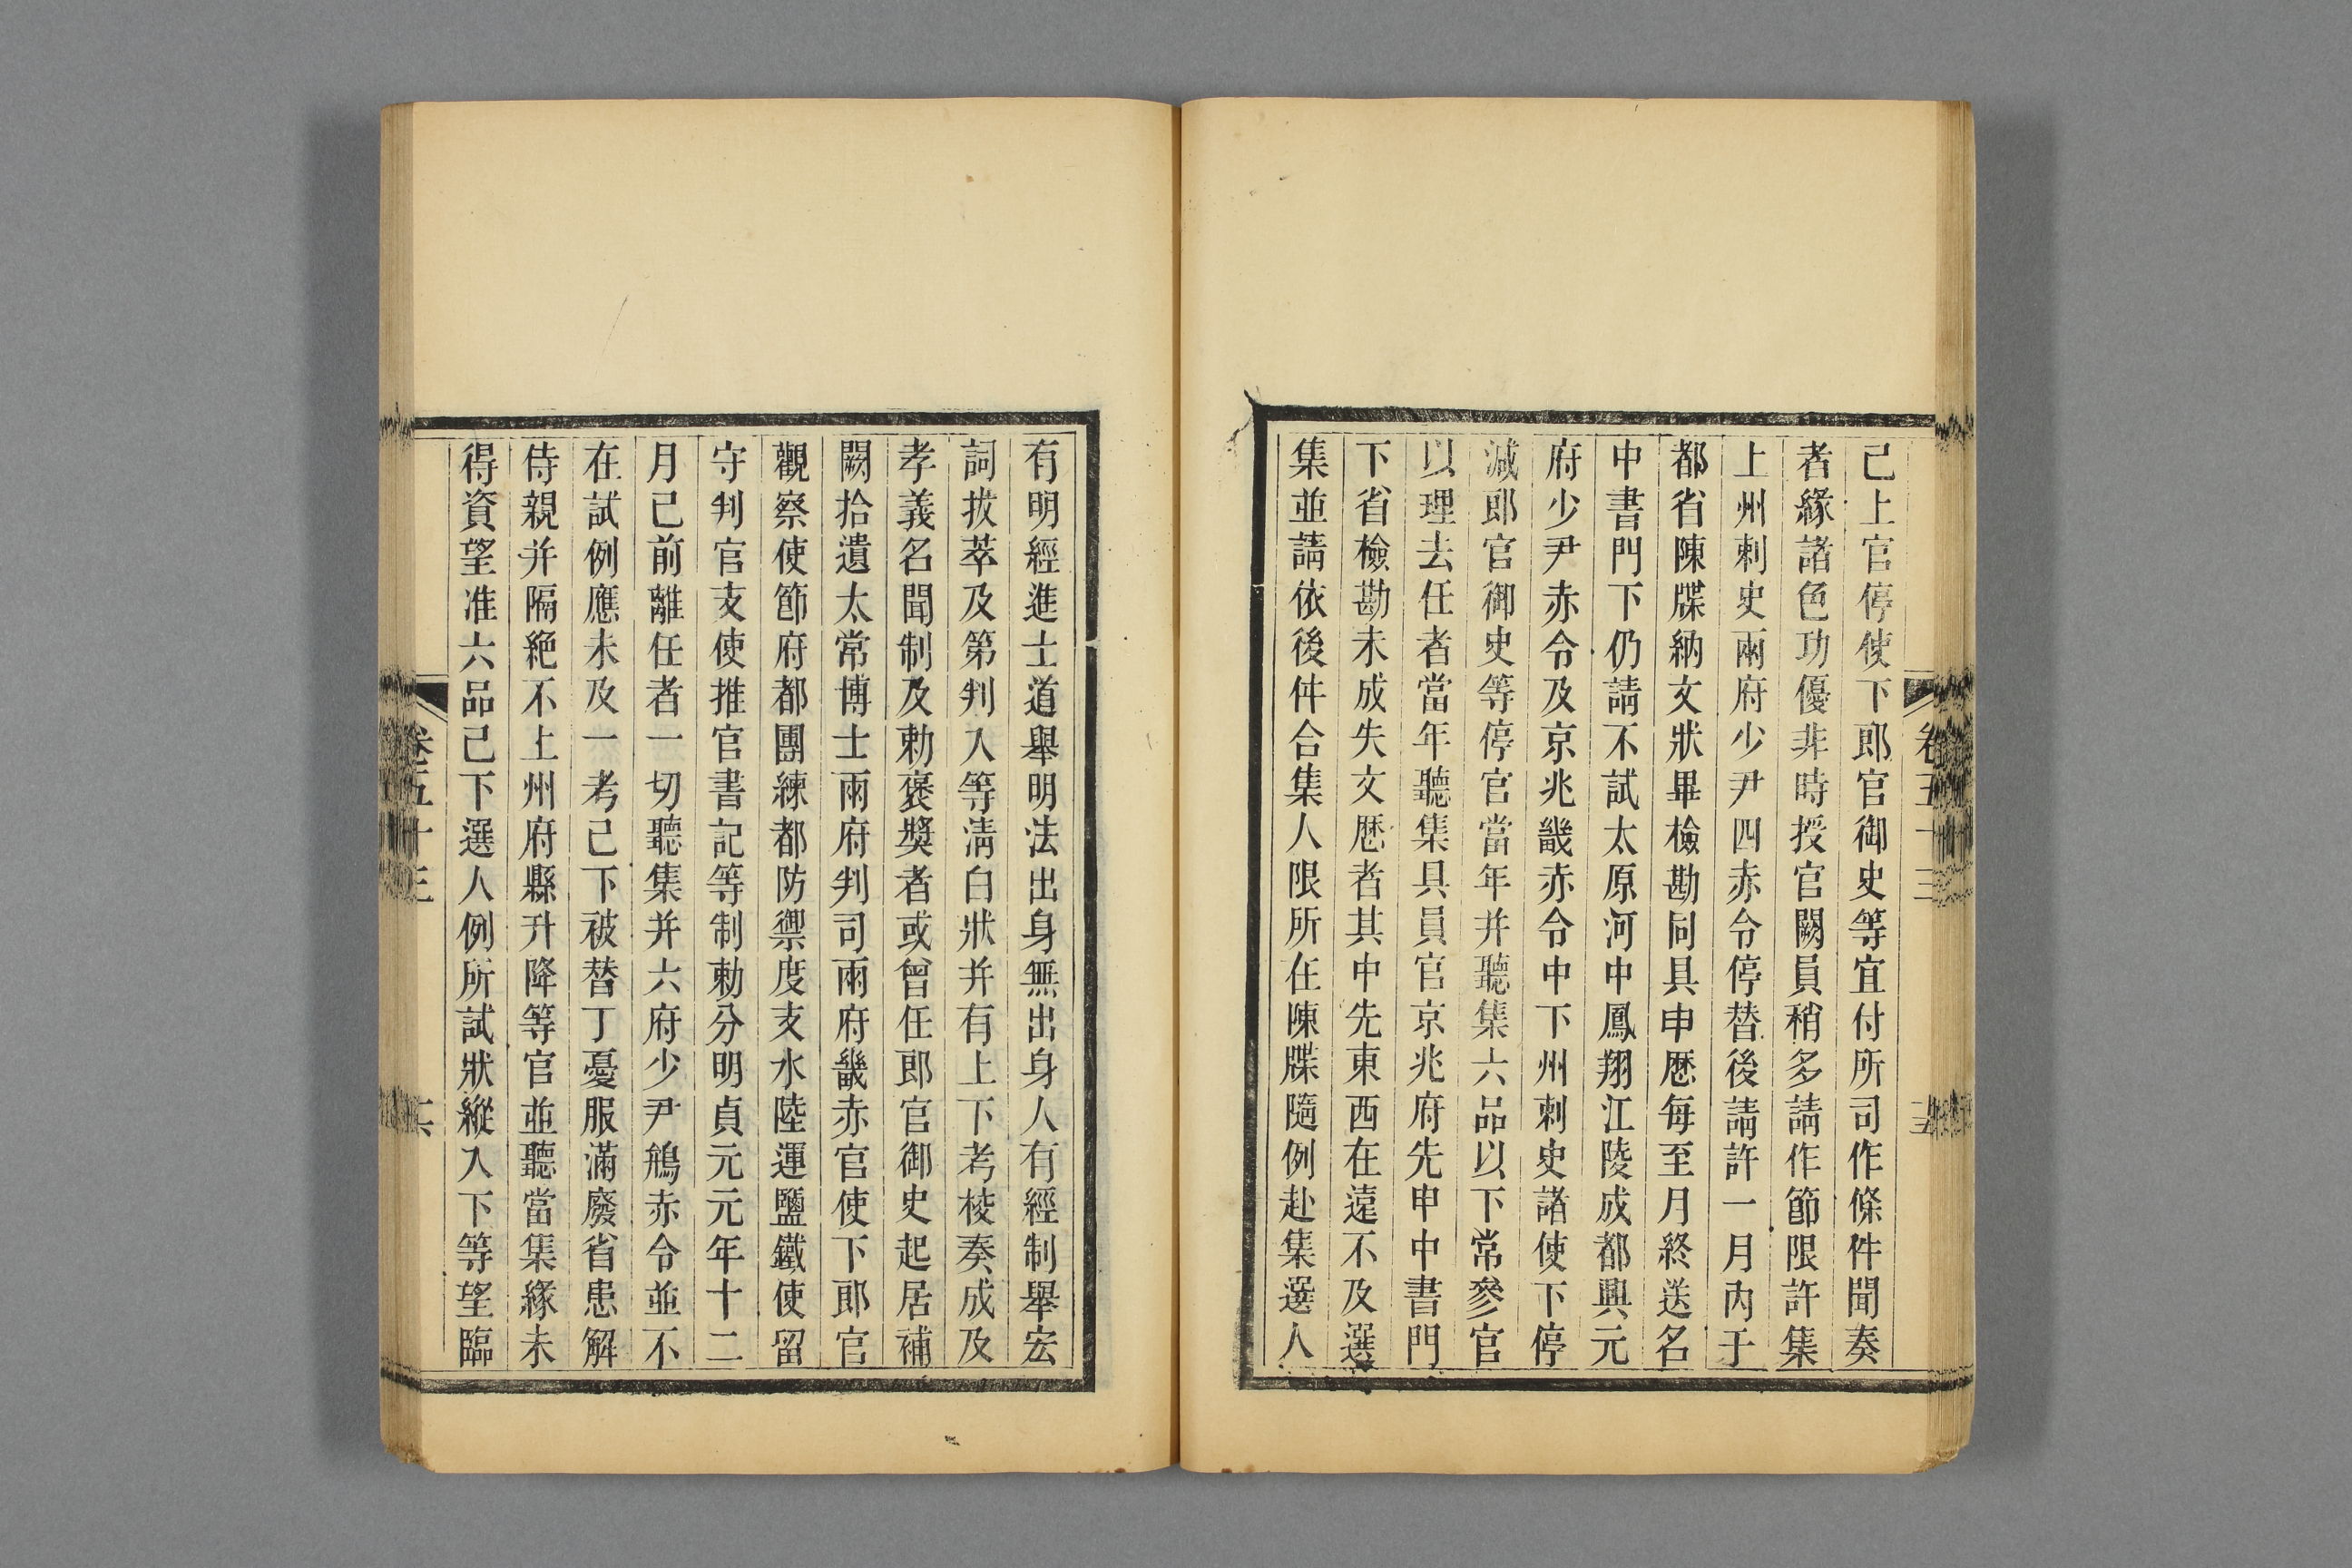 卷五十三
己上官停使下郎官御史等宜付所司作條件聞奏
者緣諸色功優非時授官闕員稍多請作節限許集
上州刺史兩府少尹四赤令停替後請許一月內于
都省陳牒納文狀畢檢勘同具申歷每至月終送名
中書門下仍請不試太原河中鳳翔江陵成都興元
府少尹赤令及京兆畿赤令中下州刺史諸使下停
減郎官御史等停官當年并聽集六品以下常參官
以理去任者當年聽集具員官京兆府先申中書門
下省檢勘未成失文歷者其中先東西在遠不及選
集並請依後件合集人限所在陳牒隨例赴集選人
有明經進士道舉明法出身無出身人有經制舉宏
詞拔萃及第判入等淸白狀并有上下考棱奏成及
孝義名聞制及勅褒獎者或曾任郎官御史起居補
闕拾遺太常博士兩府判司兩府畿赤官使下郎官
觀察使節府都團練都防禦度支水陸運鹽鐵使留
守判官支使推官書記等制勅分明貞元元年十二
月己前離任者一切聽集并六府少尹鵃赤令並不
在試例應未及一考己下被替丁憂服滿廢省患解
侍親并隔絶不上州府縣升降等官並聽當集緣未
得資望准六品己下選人例所試狀縱入下等望臨
卷五十三